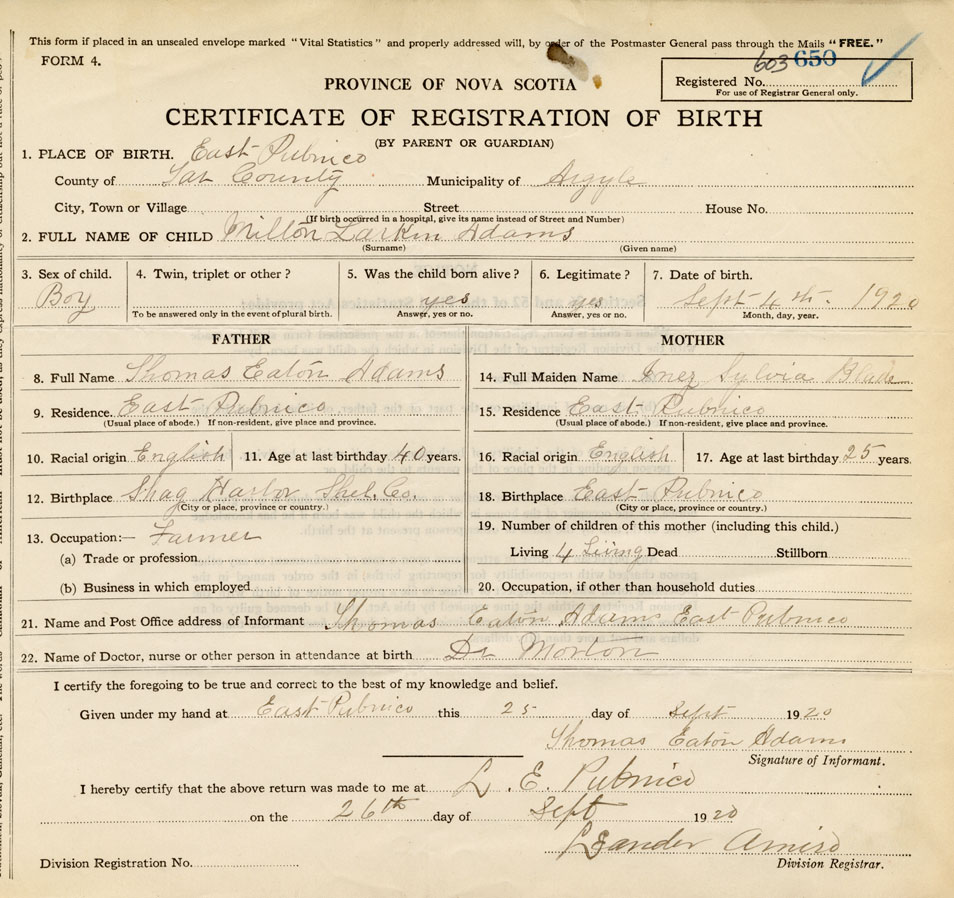 This form if placed in an unsealed envelope marked "Vital Statistics" and properly addressed will, by order of the Postmaster General pass through the Mails "FREE."
FORM 4.
603 650
Registered No.
For use of Registrar General only.
PROVINCE OF NOVA SCOTIA
CERTIFICATE OF REGISTRATION OF BIRTH
(BY PARENT OR GUARDIAN)
1. PLACE OF BIRTH. East Pubnico
County of Yar County Municipality of Argyle
City, Town or Village Street House No.
(If birth occurred in a hospital, give its name instead of Street and Number)
2. FULL NAME OF CHILD Milton Larkin Adams
(Surname) (Given name)
3. Sex of child. 4. Twin, triplet or other? 5. Was the child born alive? 6. Legitimate? 7. Date of birth.
Boy yes yes Sept 4th. 1920
To be answered only in the event of plural birth. Answer, yes or no. Answer, yes or no. Month, day, year.
FATHER MOTHER
8. Full Name Thomas Eaton Adams 14. Full Maiden Name Inez Sylvia
9. Residence. East Pubnico 15. Residence East Pubnico
(Usual place of abode.) If non-resident, give place and province. (Usual place of abode.) If non-resident, give place and province.
10. Racial origin English 11. Age at last birthday 40 years. 16. Racial origin English 17. Age at last birthday 25 years.
12. Birthplace Shag Harbor Shel. Co. 18. Birthplace East Pubnico
(City or place, province or country.) (City or place, province or country.)
13. Occupation:— Farmer 19. Number of children of this mother (including this child.)
(a) Trade or profession Living 4 Living Dead Stillborn
(b) Business in which employed 20. Occupation, if other than household duties
21. Name and Post Office address of Informant Thomas Eaton Adams East Pubnico
22. Name of Doctor, nurse or other person in attendance at birth Dr Morton
I certify the foregoing to be true and correct to the best of my knowledge and belief.
Given under my hand at East Pubnico this 25 day of Sept 1920
Thomas Eaton Adams
Signature of Informant.
I hereby certify that the above return was made to me at L. E. Pubnico
on the 26th day of Sept 1920
Leander Amiro
Division Registration No. Division Registrar.